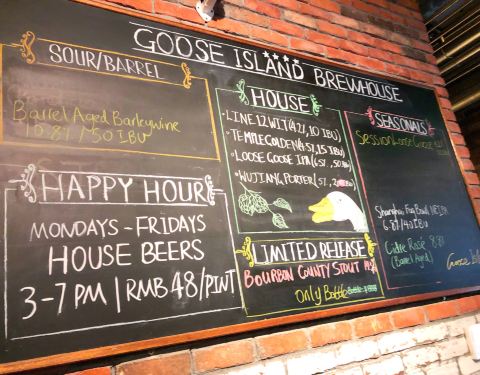 GOOSE ISLAND BREWHOUSE
SOUR/BARREL
Barrel Aged Barleywine
10.8% / 50 IBU
HAPPY HOUR
MONDAYS - FRIDAYS
HOUSE BEERS
3-7 PM | RMB 48/PINT
HOUSE
LINE 12 WIT (4.2%, 10 IBU)
TEMPLE GOLDEN (4.5%, 15 IBU)
LOOSE GOOSE IPA (6%, 50
WUJIANG PORTER (5%, 2
LIMITED RELEASE
BOURBON COUNTY STOUT
Only Bottle
SEASONALS
Session Loose Goose
Shanghai Fog Bowl NEIPA
6.8% / 40 IBU
Cidre Rosé 8.8%
(Barrel Aged)